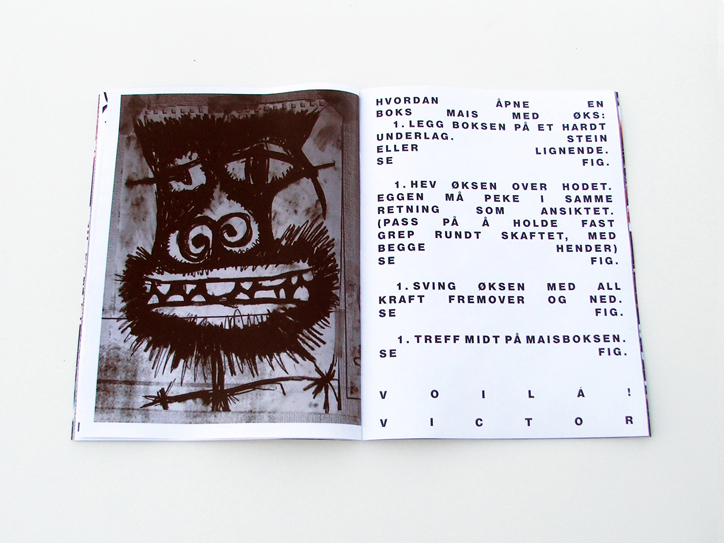 HVORDAN ÅPNE EN
BOKS MAIS MED ØKS:
1. LEGG BOKSEN PÅ ET HARDT
UNDERLAG. STEIN
ELLER LIGNENDE.
SE FIG.
1. HEV ØKSEN OVER HODET.
EGGEN MÅ PEKE I SAMME
RETNING SOM ANSIKTET.
(PASS PÅ Å HOLDE FAST
GREP RUNDT SKAFTET, MED
BEGGE HENDER)
SE FIG.
1. SVING ØKSEN MED ALL
KRAFT FREMOVER OG NED.
SE FIG.
1. TREFF MIDT PÅ MAISBOKSEN.
SE FIG.
V O I L Á !
V I C T O R